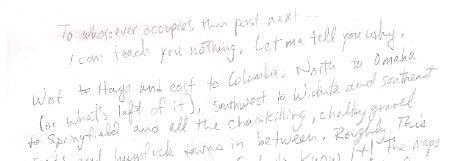 To whosoever occupies this post next --
I can teach you nothing. Let me tell you why.
West to Hays and east to Columbia. North to Omaha
(or what's left of it), southwest to Wichita and southeast
to Springfield and all the chainkilling, chalky gravel
and bumfuck towns in between. Roughly. This
The maps